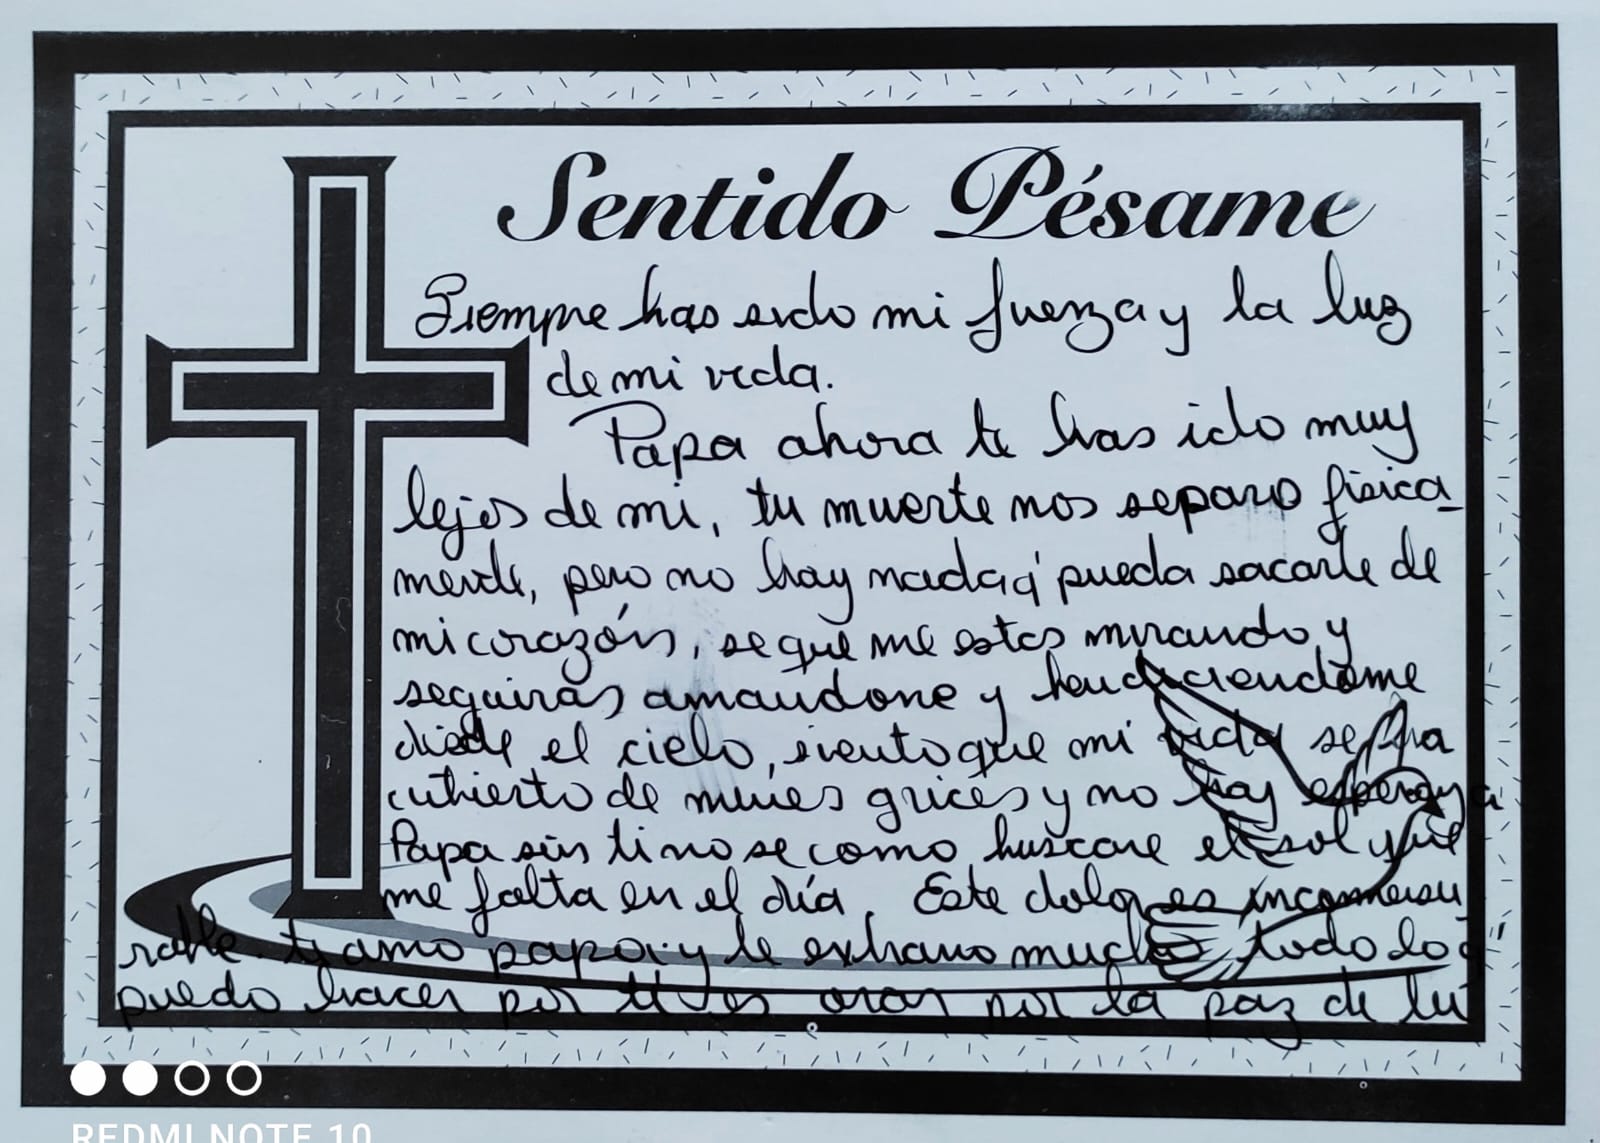 Sentido Pésame
Siempre has sido mi fuerza y la luz
de mi vida.
Papa ahora te has ido muy
lejos de mi, tu muerte nos separo fisica-
mente, pero no hay nada q' pueda sacarte de
mi corazón, se que me estas mirando y
seguiras amandome y bendiciendome
desde el cielo, siento que mi vida
cubierto de nuves grices y no hay
Papa sin ti no se como buscare el sol que
me falta en el día. Este dolor es inconmensu
rable. te amo papa y te extraño mucho todo lo q'
puedo hacer por ti es orar por la paz de tu
REDMI NOTE 10